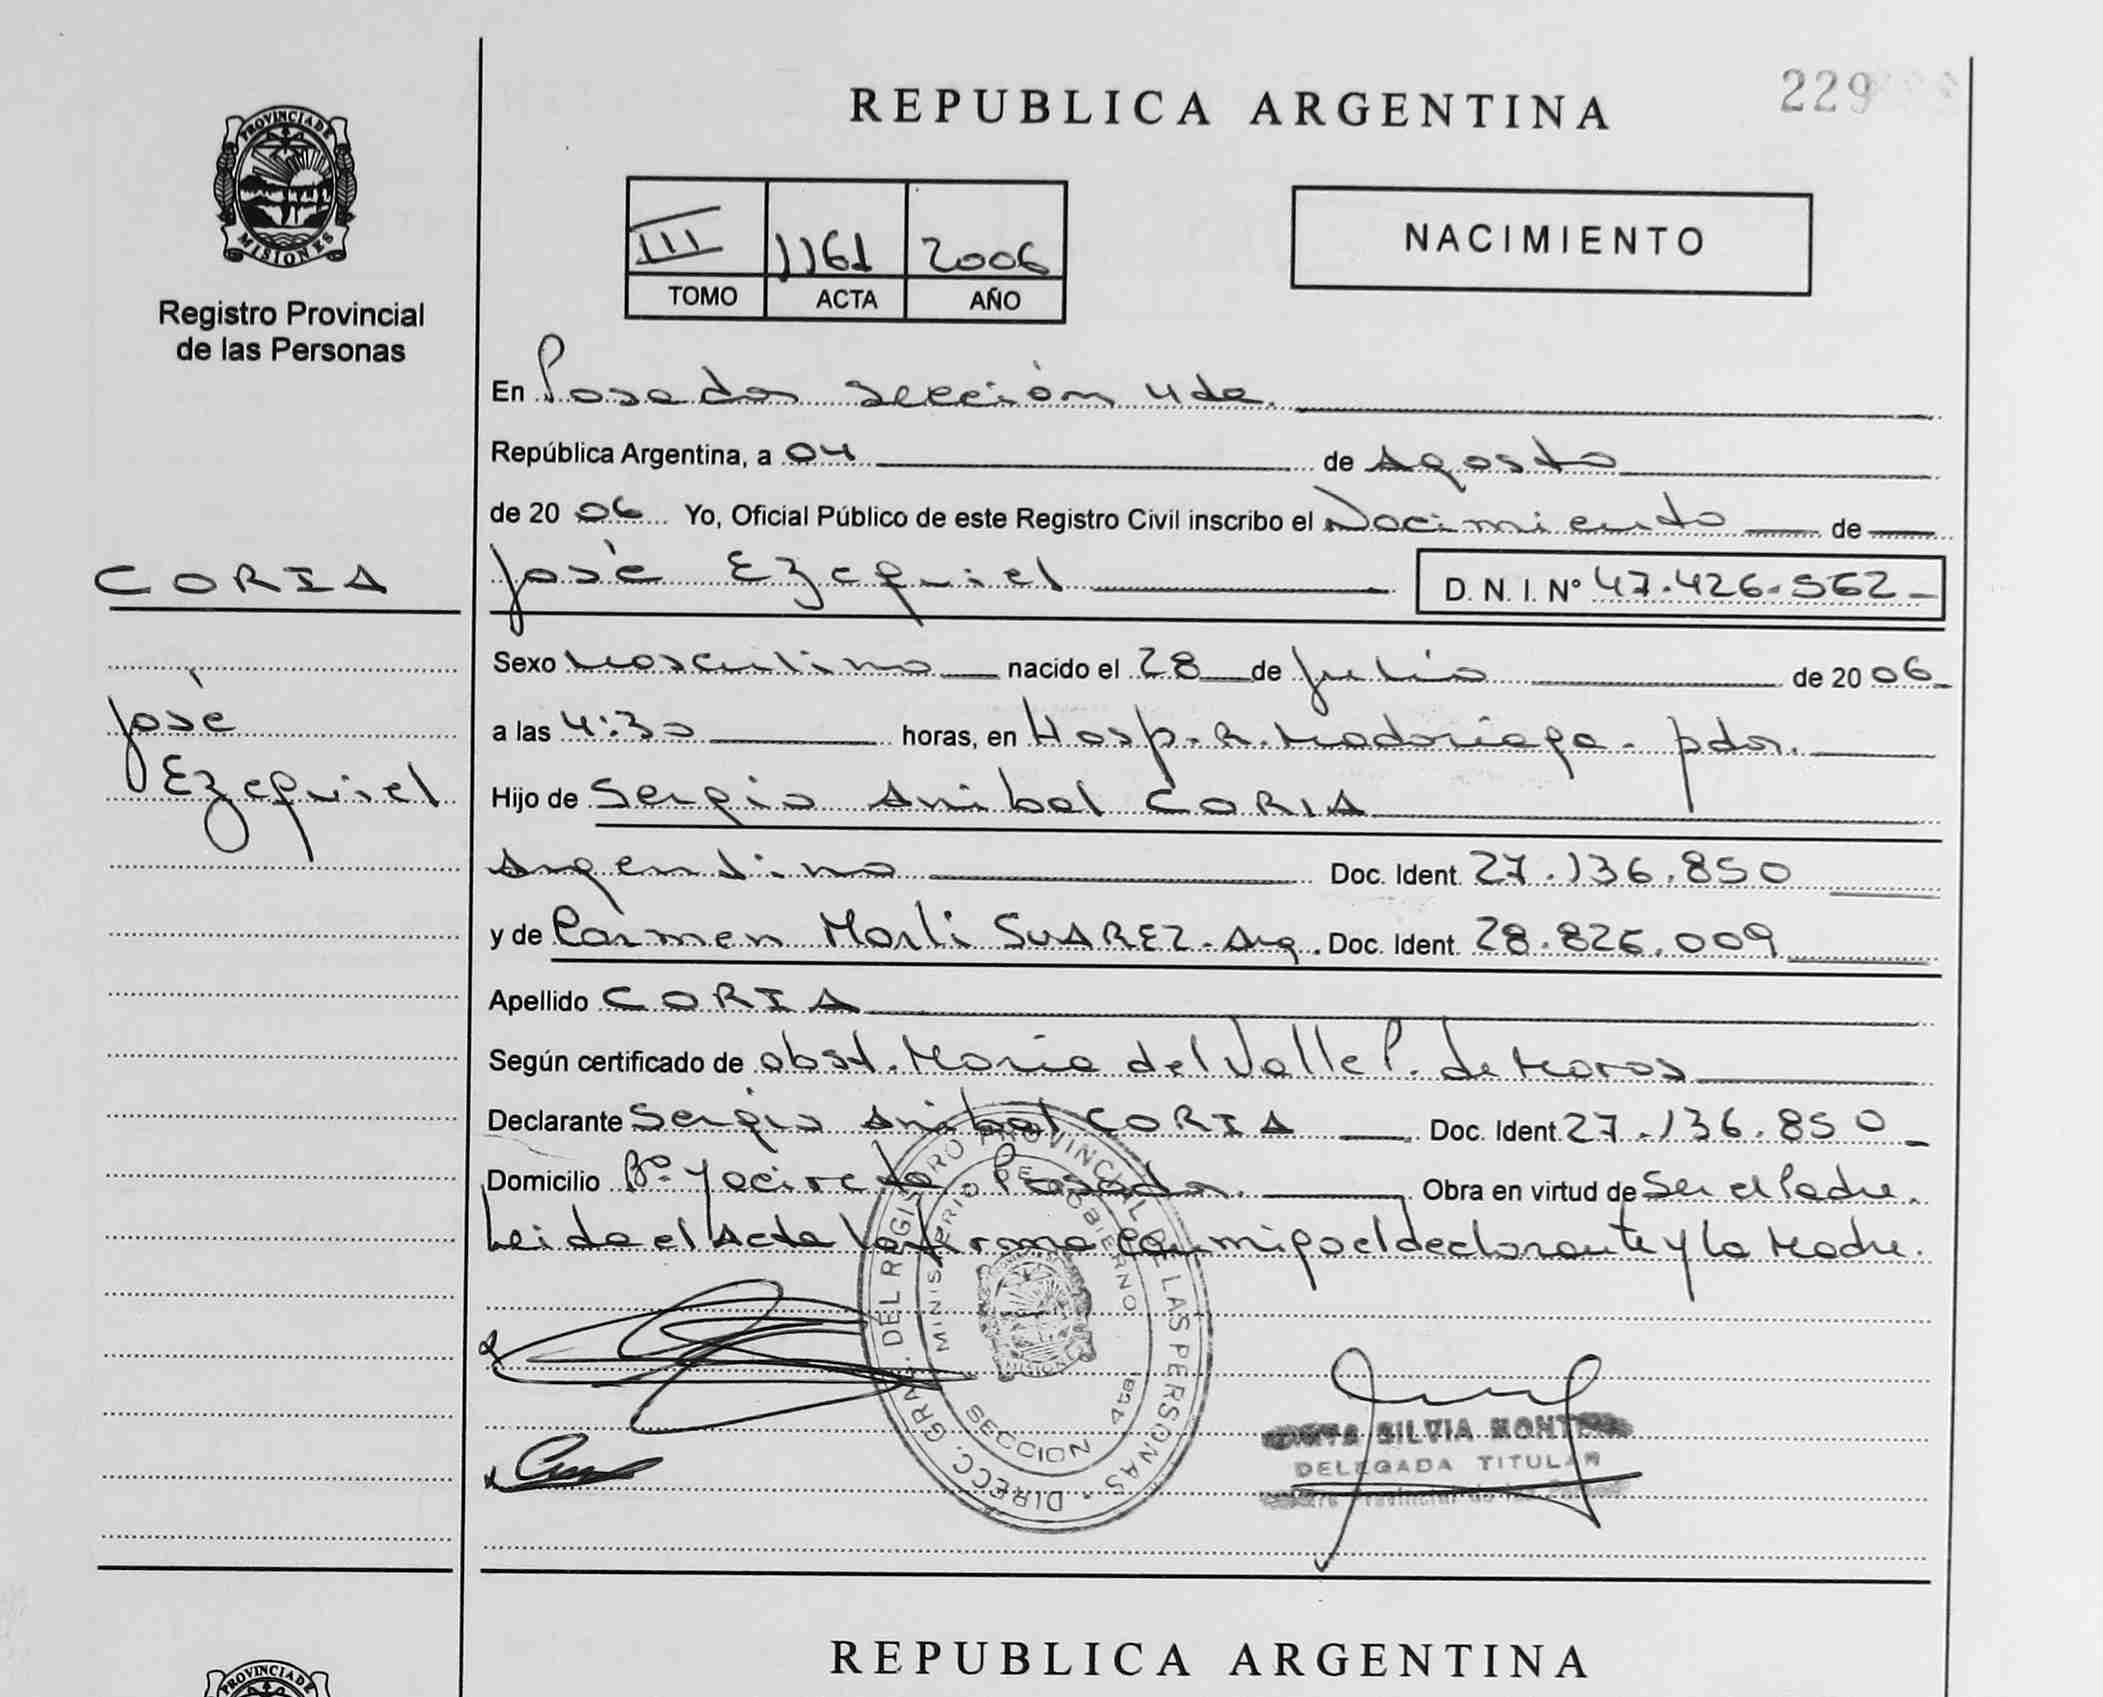 229
REPUBLICA ARGENTINA
PROVINCIA DE
MISIONES
Registro Provincial
de las Personas
III 1161 2006
TOMO ACTA AÑO
NACIMIENTO
En Posadas sección 4ta.
República Argentina, a 04 de Agosto
de 2006 Yo, Oficial Público de este Registro Civil inscribo el Nacimiento de
CORIA
José Ezequiel D. N. I. Nº 47.426.562
Sexo Masculino nacido el 28 de Julio de 2006
José
Ezequiel
a las 4:30 horas, en Hosp. R. Madariaga - pdas.
Hijo de Sergio Anibal CORIA
Argentino Doc. Ident. 27.136.850
y de Carmen Marli SUAREZ - Arg. Doc. Ident. 28.826.009
Apellido CORIA
Según certificado de obst. María del Valle P. de Maros
Declarante Sergio Anibal CORIA Doc. Ident. 27.136.850
Domicilio Bº Yacireta Posadas. Obra en virtud de Ser el Padre.
Leida el Acta la firma conmigo el declarante y la Madre.
DIRECC. GRAL. DEL REGISTRO PROVINCIAL DE LAS PERSONAS
MINISTERIO DE GOBIERNO
SECCION
SILVIA
DELEGADA TITULAR
Provincial de las
REPUBLICA ARGENTINA
PROVINCIA DE